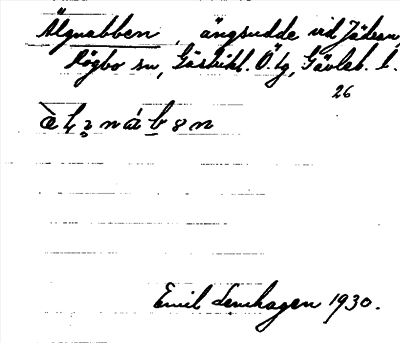 Älgnabben, ängsudde vid Jädraån,
Högbo sn, Gästrikl. Ö. tg, Gävleb. l.
26
Emil Lenhagen 1930.